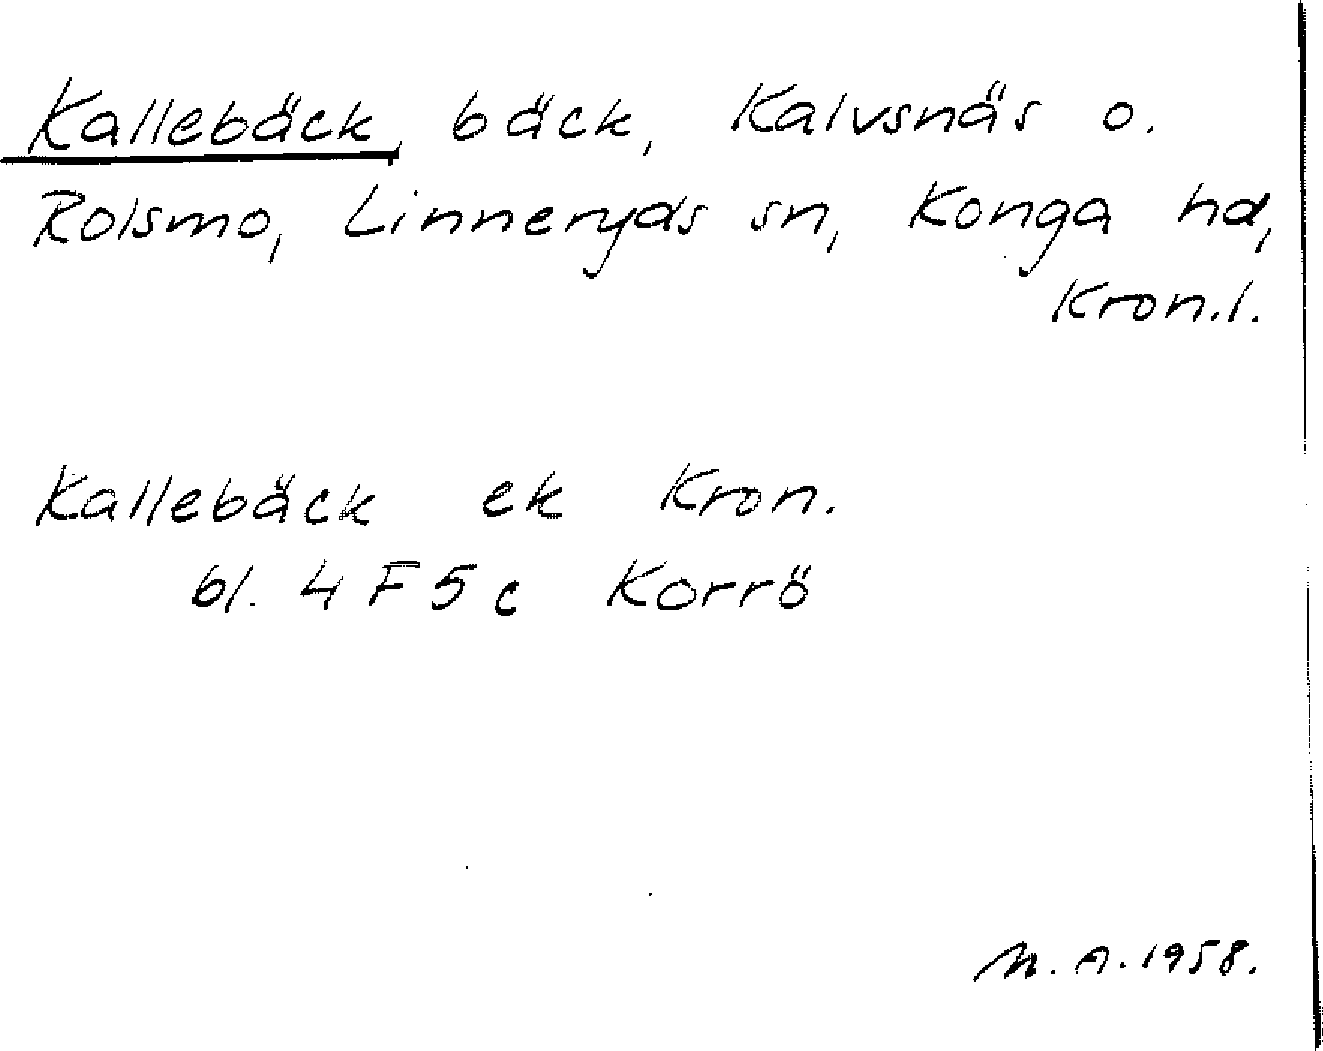 Kallebäck, bäck, Kalvsnäs o.
Rolsmo, Linneryds sn, Konga hd,
Kron.l.
Kallebäck ek Kron.
bl. 4 F 5 c Korrö
M. A. 1958.